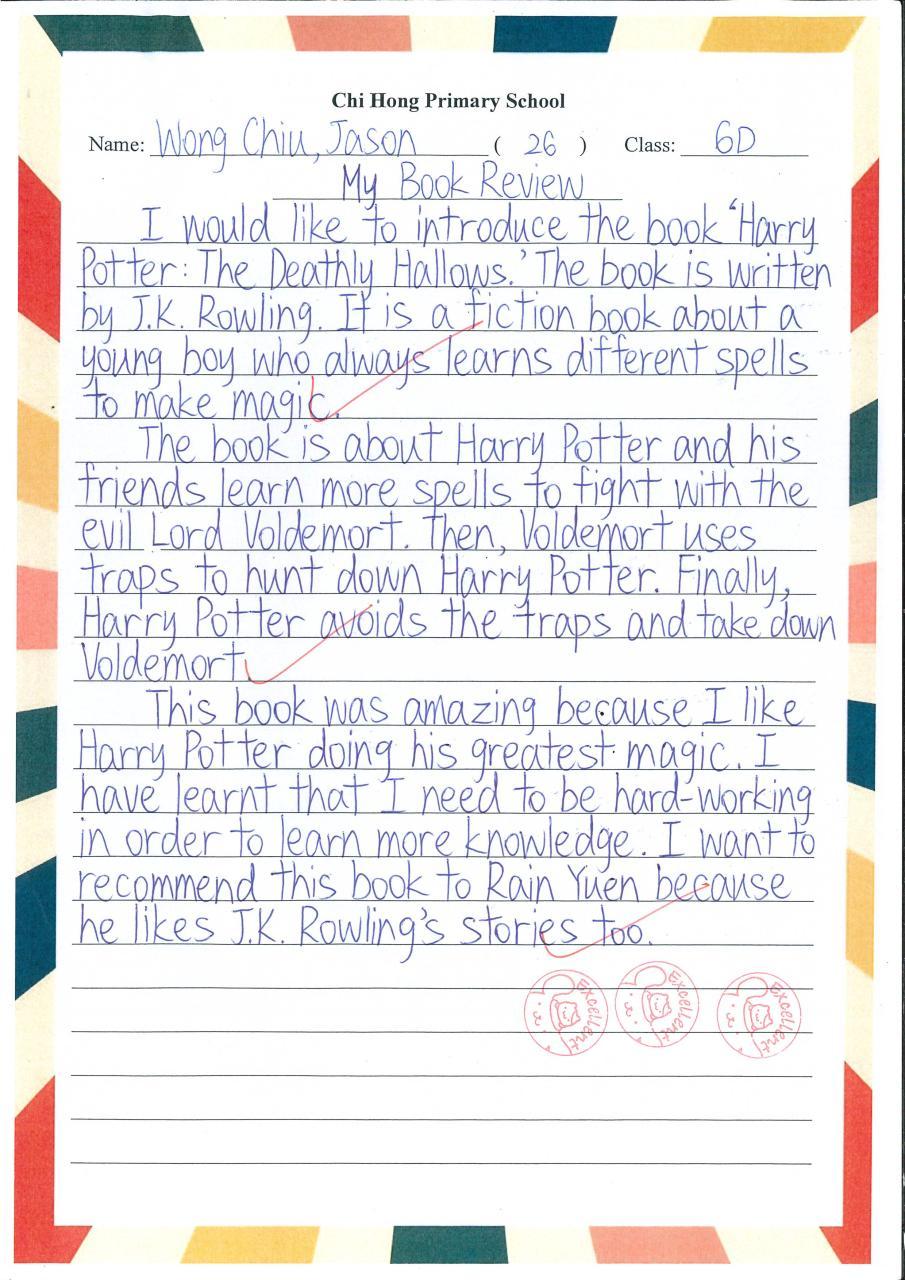 Chi Hong Primary School
Name: Wong Chiu, Jason ( 26 ) Class: 6D
My Book Review
I would like to introduce the book ‘Harry
Potter: The Deathly Hallows.’ The book is written
by J.K. Rowling. It is a fiction book about a
young boy who always learns different spells
to make magic.
The book is about Harry Potter and his
friends learn more spells to fight with the
evil Lord Voldemort. Then, Voldemort uses
traps to hunt down Harry Potter. Finally,
Harry Potter avoids the traps and take down
Voldemort.
This book was amazing because I like
Harry Potter doing his greatest magic. I
have learnt that I need to be hard-working
in order to learn more knowledge. I want to
recommend this book to Rain Yuen because
he likes J.K. Rowling's stories too.
Excellent Excellent Excellent